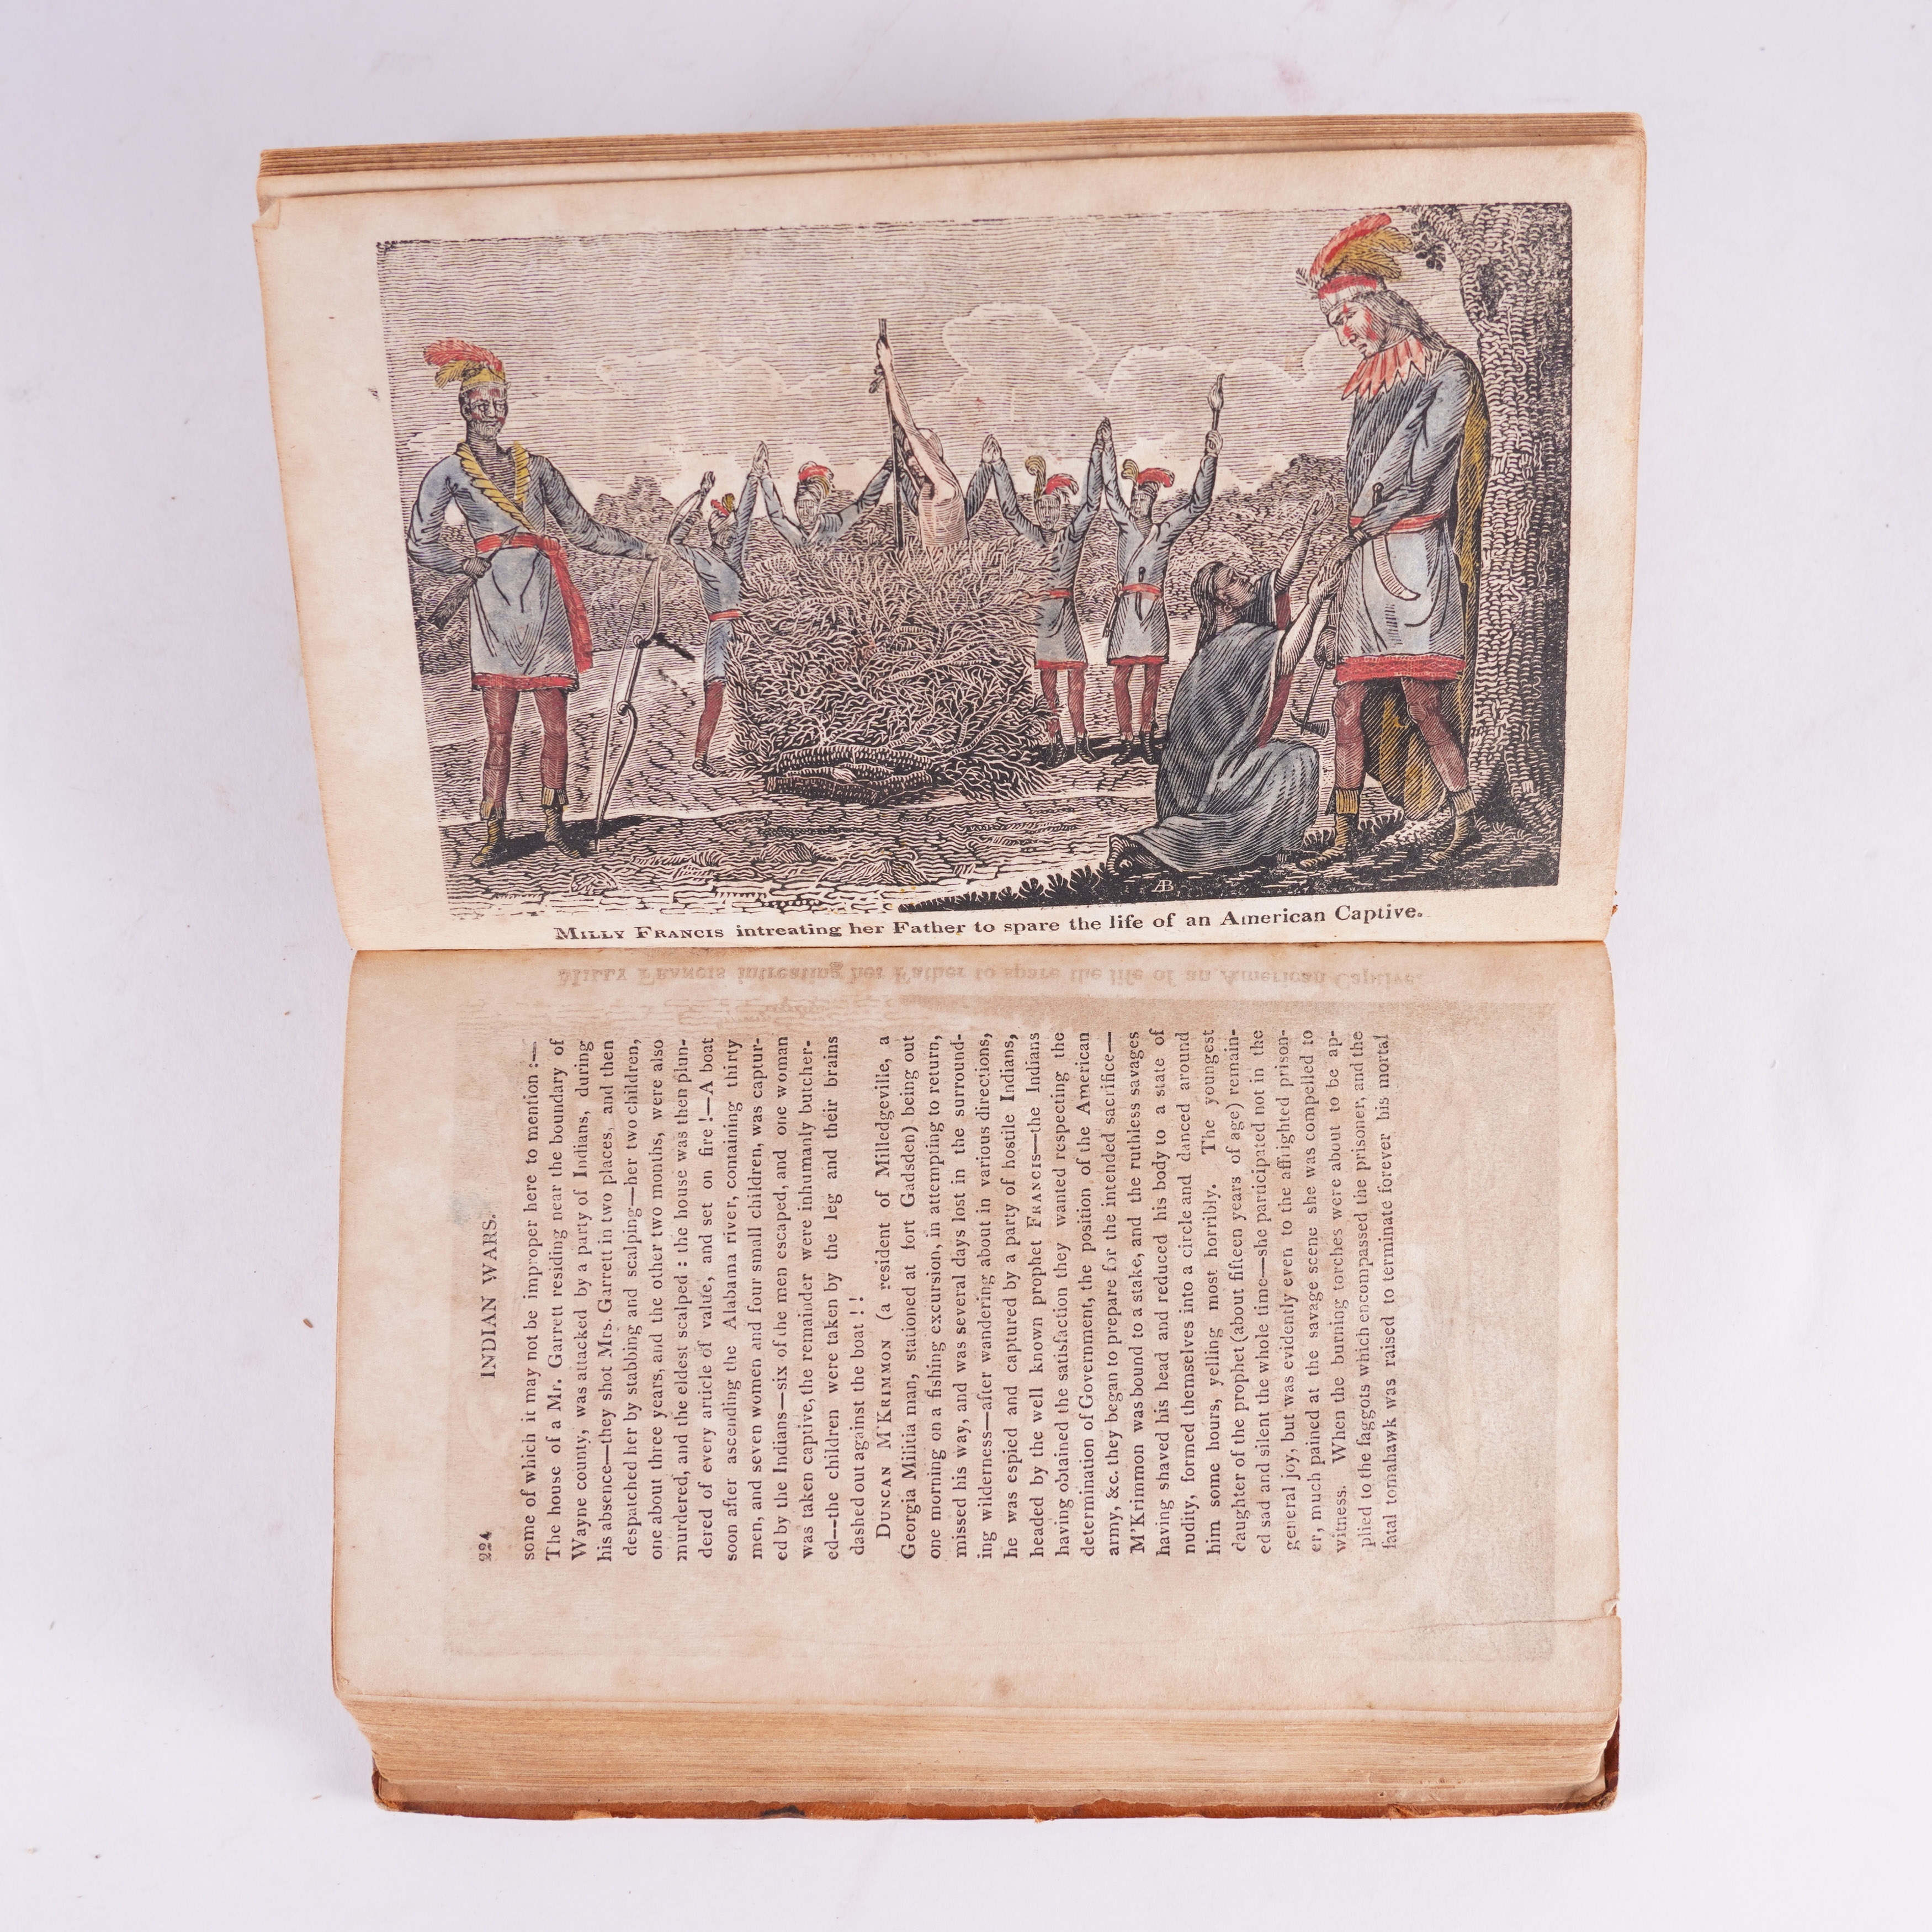 MILLY FRANCIS intreating her Father to spare the life of an American Captive.
AB
224
INDIAN WARS.
some of which it may not be improper here to mention :—
The house of a Mr. Garrett residing near the boundary of
Wayne county, was attacked by a party of Indians, during
his absence—they shot Mrs. Garrett in two places, and then
despatched her by stabbing and scalping—her two children,
one about three years, and the other two months, were also
murdered, and the eldest scalped : the house was then plun-
dered of every article of value, and set on fire !—A boat
soon after ascending the Alabama river, containing thirty
men, and seven women and four small children, was captur-
ed by the Indians—six of the men escaped, and one woman
was taken captive, the remainder were inhumanly butcher-
ed—the children were taken by the leg and their brains
dashed out against the boat ! !
DUNCAN M'KRIMMON (a resident of Milledgeville, a
Georgia Militia man, stationed at fort Gadsden) being out
one morning on a fishing excursion, in attempting to return,
missed his way, and was several days lost in the surround-
ing wilderness—after wandering about in various directions,
he was espied and captured by a party of hostile Indians,
headed by the well known prophet FRANCIS—the Indians
having obtained the satisfaction they wanted respecting the
determination of Government, the position of the American
army, &c. they began to prepare for the intended sacrifice—
M'Krimmon was bound to a stake, and the ruthless savages
having shaved his head and reduced his body to a state of
nudity, formed themselves into a circle and danced around
him some hours, yelling most horribly. The youngest
daughter of the prophet (about fifteen years of age) remain-
ed sad and silent the whole time—she participated not in the
general joy, but was evidently even to the affrighted prison-
er, much pained at the savage scene she was compelled to
witness. When the burning torches were about to be ap-
plied to the faggots which encompassed the prisoner, and the
fatal tomahawk was raised to terminate forever his mortal